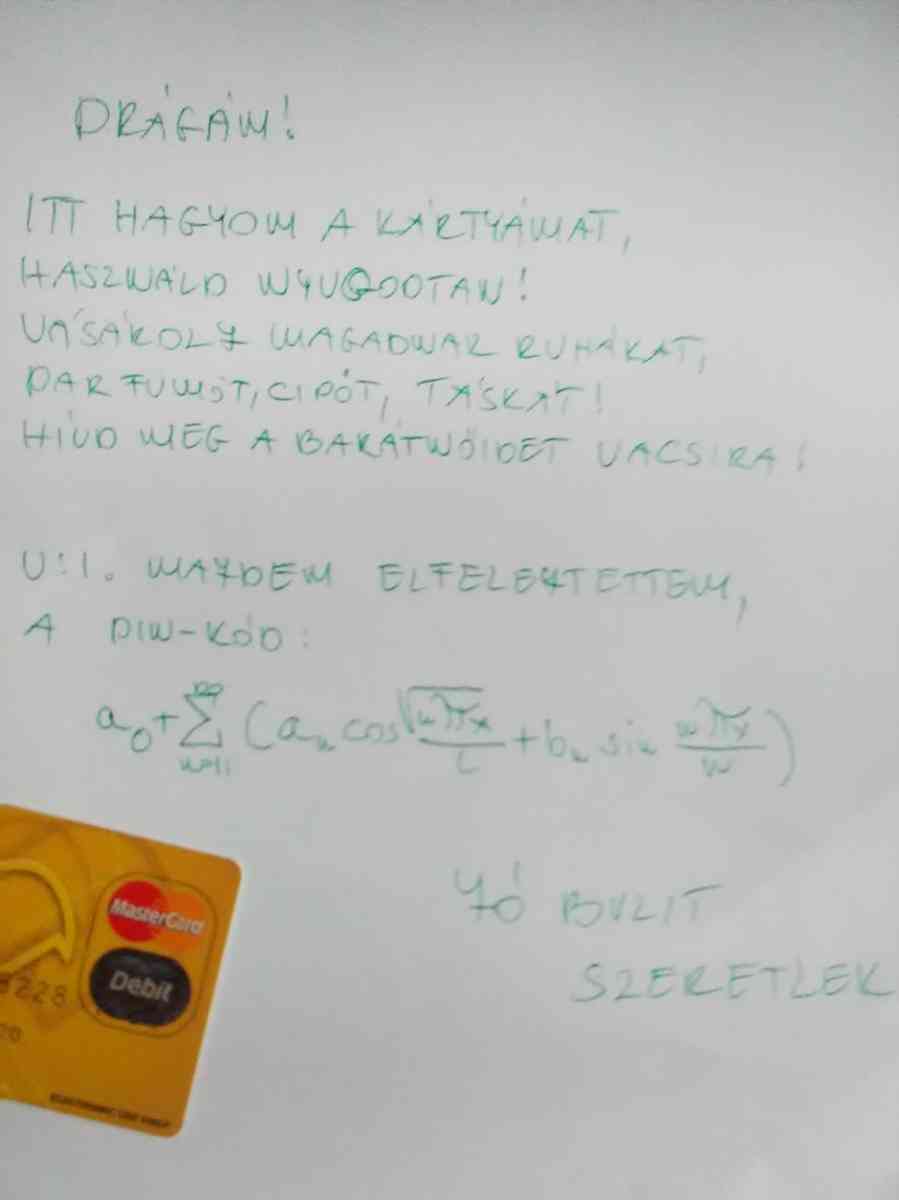 DRÁGÁM!
ITT HAGYOM A KÁRTYÁMAT,
HASZNÁLD NYUGODTAN!
VÁSÁROLJ MAGADNAK RUHÁKAT,
PARFÜMÖT, CIPŐT, TÁSKÁT!
HÍVD MEG A BARÁTNŐIDET VACSIRA!
U:I. MAJDEM ELFELEJTETTEM,
A PIN-KÓD:
a₀+∑(aₙ cos √nπx/L + bₙ sin nπx/w)
n=1 ∞
JÓ BULIT
SZERETLEK
MasterCard
Debit
3228
20
ELECTRONIC USE ONLY